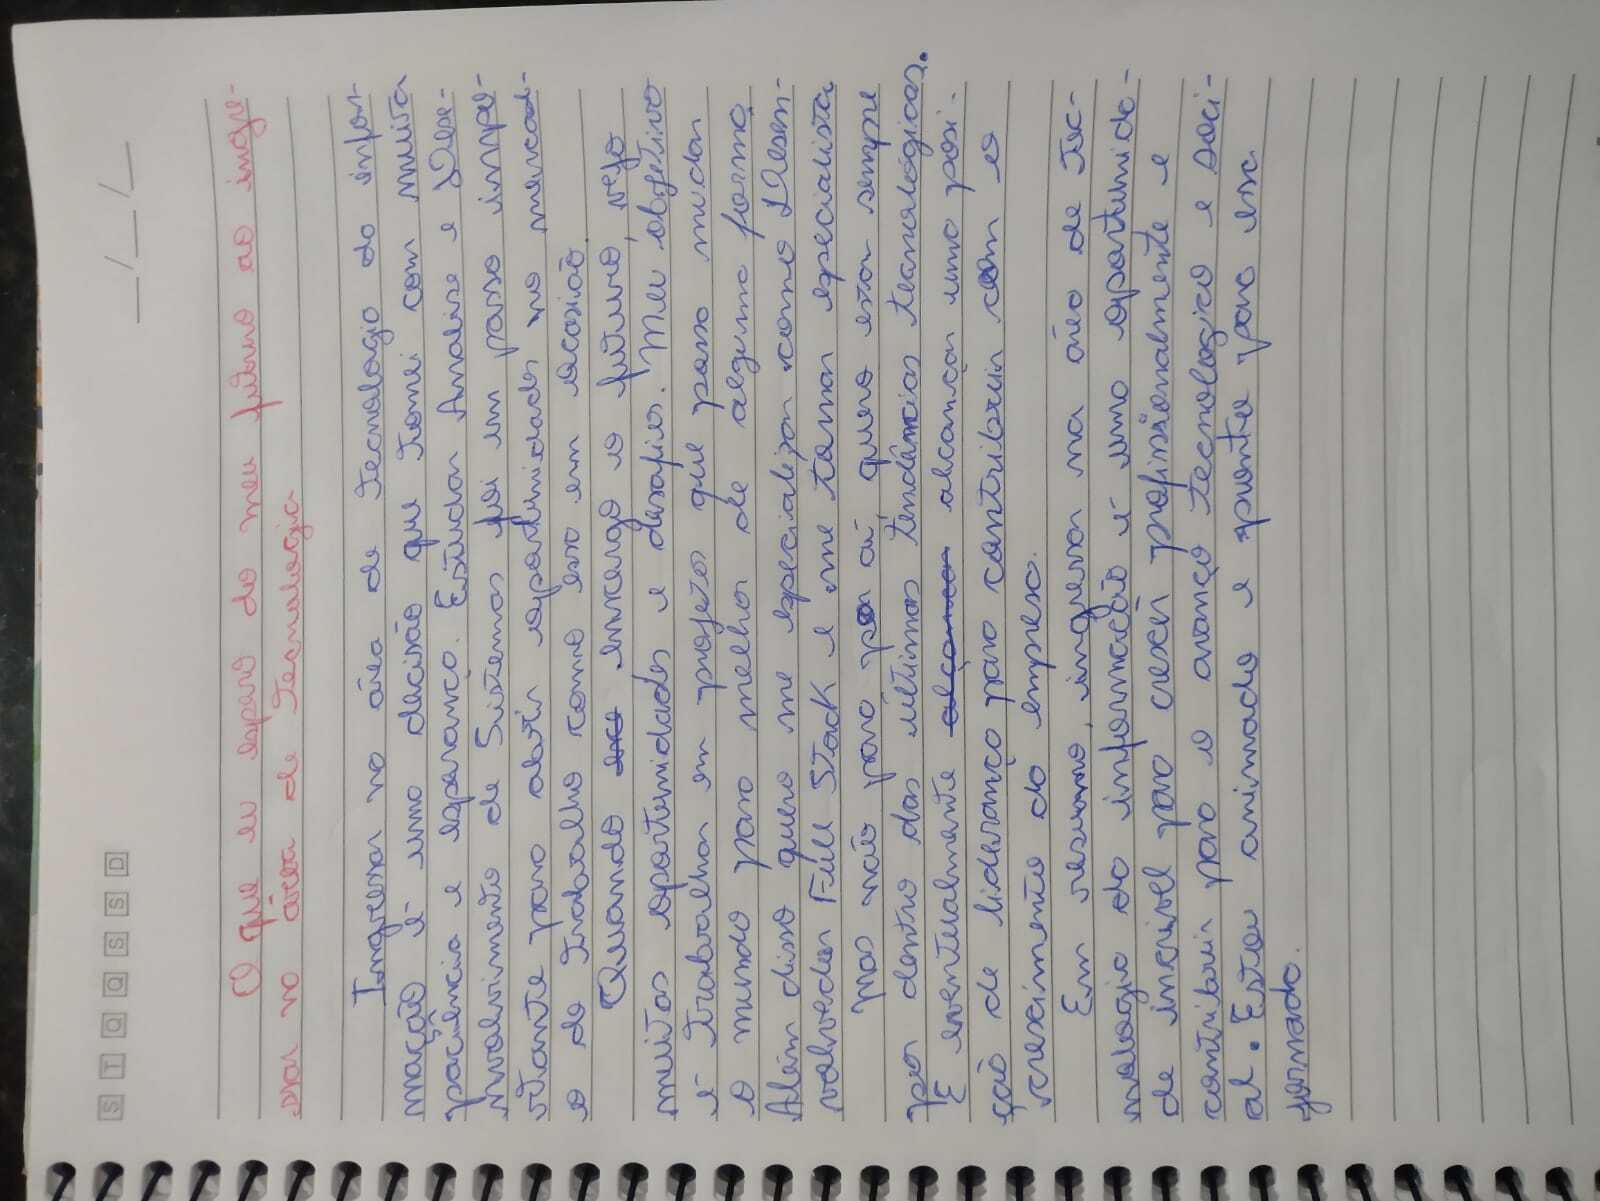 S T Q Q S S D
__/__/__
O que eu espero do meu futuro ao ingre-
ssar na área de Tecnologia
Ingressar na área de Tecnologia da infor-
mação é uma decisão que Tomei com muita
paciência e esperança. Estudar Analise e Dese-
nvolvimento de Sistemas foi um passo impor-
tante para abrir oportunidades no mercad-
o de Trabalho como essa em ocasião.
Quando enxergo o futuro, vejo
muitas oportunidades e desafios. Meu objetivo
é Trabalhar em projetos que possa mudar
o mundo para melhor de alguma forma.
Além disso quero me especializar como Desen-
volvedor Full Stack e me tornar especialista
mas não para por aí, quero estar sempre
por dentro das últimas tendências tecnológicas.
E eventualmente alcançar uma posi-
ção de liderança para contribuir com o
crescimento da empresa.
Em resumo, ingressar na área de Tec-
nologia da informação é uma oportunida-
de incrível para crescer profissionalmente e
contribuir para o avanço Tecnologico e soci-
al. Estou animado e pronto para essa
jornada.